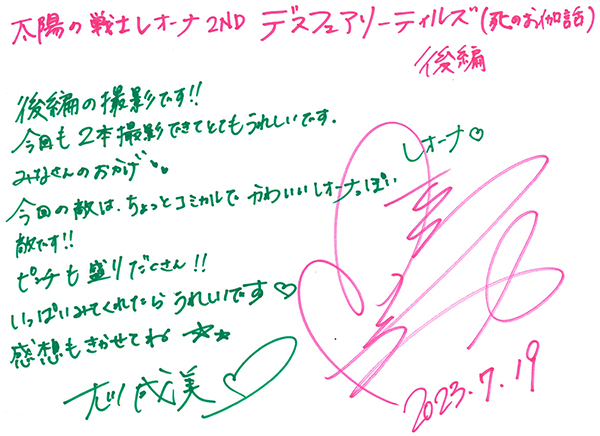 太陽の戦士レオーナ2ND デスフェアリーティルズ(死のお伽話)
後編
後編の撮影です!!
今回も2本撮影できてとてもうれしいです。
みなさんのおかげ
今回の敵は、ちょっとコミカルでかわいいレオーナっぽい
敵です!!
ピンチも盛りだくさん!!
いっぱいみてくれたらうれしいです♡
感想もきかせてね☆★
成美♡
レオーナ♡
2023.7.19